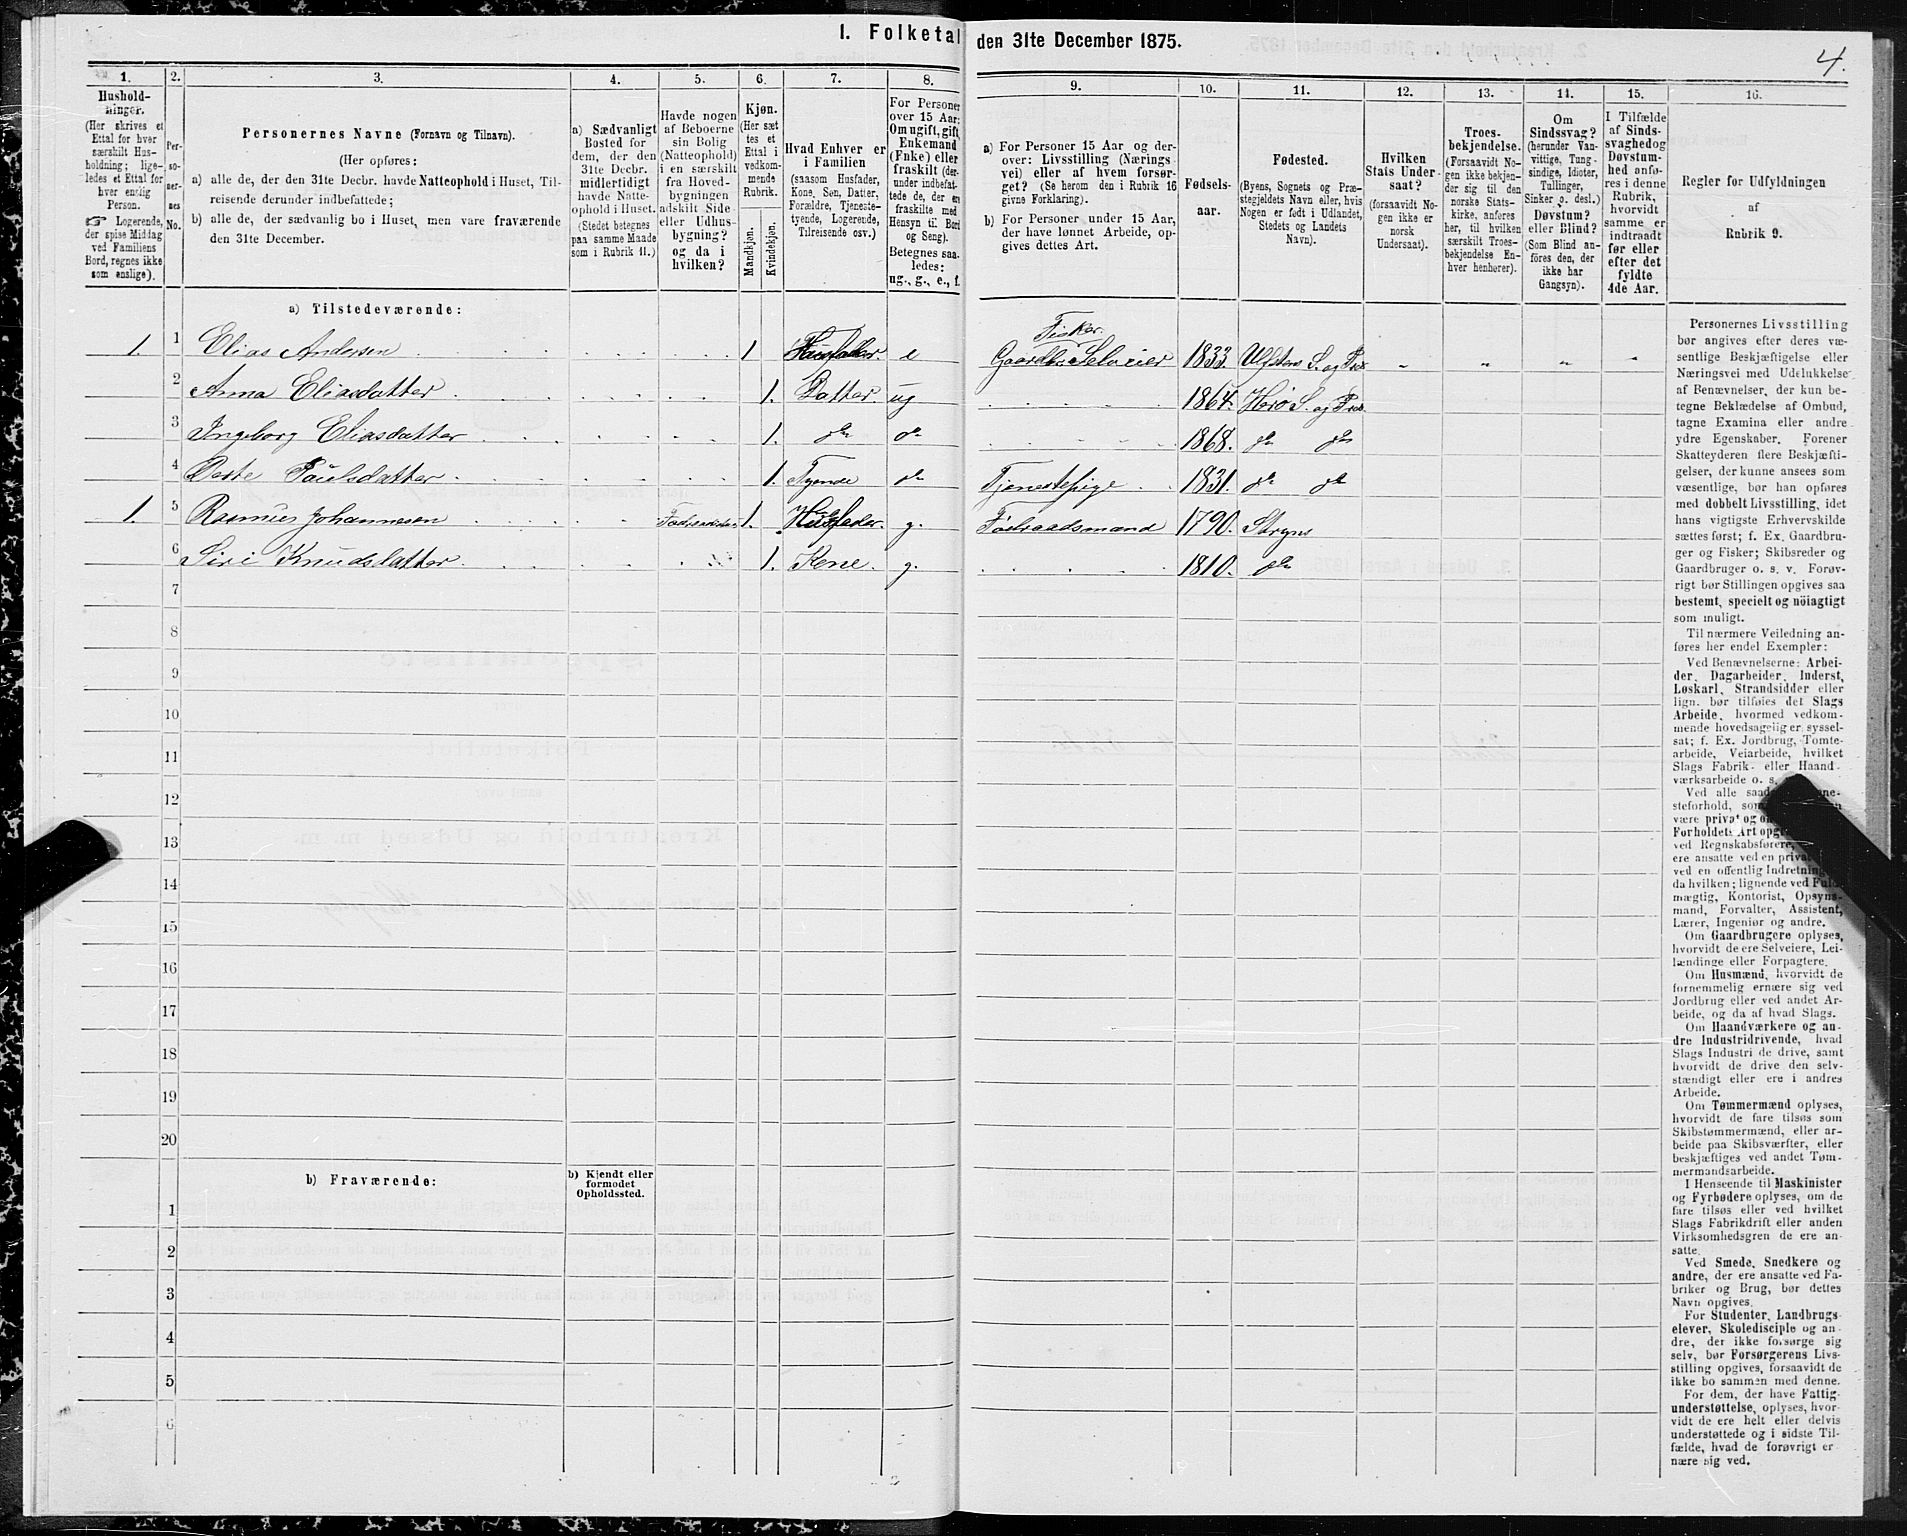 I. Folketal den 31te December 1875.
4.
1. 2. 3. 4. 5. 6. 7. 8. 9. 10. 11. 12. 13. 14. 15. 16.
Hushold-
ninger.
(Her skrives et
Ettal for hver
særskilt Hus-
holdning; lige-
ledes et Ettal for
hver enslig
Person.
☞ Logerende,
der spise Middag
ved Familiens
Bord, regnes ikke
som enslige).
Per-
so-
ner-
nes
No.
Personernes Navne (Fornavn og Tilnavn).
(Her opføres:
a) alle de, der den 31te Decbr. havde Natteophold i Huset, Til-
reisende derunder indbefattede;
b) alle de, der sædvanlig bo i Huset, men vare fraværende
den 31te December.
a) Sædvanligt
Bosted for
dem, der den
31te Decbr.
midlertidigt
havde Natte-
ophold i Huset.
(Stedet betegnes
paa samme Maade
som i Rubrik 11.)
Havde nogen
af Beboerne
sin Bolig
(Natteophold)
i en særskilt
fra Hoved-
bygningen
adskilt Side-
eller Udhus-
bygning?
og da i
hvilken?
Kjøn.
(Her sæt
tes et
Ettal i
vedkom-
mende
Rubrik.
Mandkjøn.
Kvindekjøn.
Hvad Enhver er
i Familien
(saasom Husfader,
Kone, Søn, Datter,
Forældre, Tjeneste-
tyende, Logerende,
Tilreisende osv.)
For Personer
over 15 Aar:
Om ugift, gift,
Enkemand
(Enke) eller
fraskilt (der-
under indbefat-
tede de, der ere
fraskilte med
Hensyn til Bord
og Seng).
Betegnes saa-
ledes:
ug., g., e., f.
a) For Personer 15 Aar og der-
over: Livsstilling (Nærings
vei) eller af hvem forsør-
get? (Se herom den i Rubrik 16
givne Forklaring).
b) For Personer under 15 Aar,
der have lønnet Arbeide, op-
gives dettes Art.
Fødsels-
aar.
Fødested.
(Byens, Sognets og Præ-
stegjeldets Navn eller, hvis
Nogen er født i Udlandet,
Stedets og Landets
Navn).
Hvilken
Stats Under-
saat?
(forsaavidt No-
gen ikke er
norsk
Undersaat).
Troes-
bekjendelse.
(Forsaavidt No-
gen ikke bekjen-
der sig til den
norske Stats-
kirke, anføres
her, til hvilken
særskilt Troes-
bekjendelse En-
hver henhører).
Om
Sindssvag?
(herunder Van-
vittige, Tung-
sindige, Idioter,
Tullinger,
Sinker o. desl.)
Døvstum?
eller Blind?
(Som Blind an-
føres den, der
ikke har
Gangsyn).
I Tilfælde
af Sinds-
svaghed og
Døvstum-
hed anfø-
res i denne
Rubrik,
hvorvidt
samme er
indtraadt
før eller
efter det
fyldte
4de Aar.
Regler for Udfyldningen
af
Rubrik 9.
a) Tilstedeværende:
Fisker.
1. 1 Elias Andersen 1 Husfader e Gaardbr. Selveier 1833. Ulfsten S. og Præs „ „ „ „
2 Anna Eliasdatter 1. Datter. ug 1864. Herø S. og Præs.
3 Ingeborg Eliasdatter 1. do do 1868. do do
4 Dorte Paulsdatter 1. Tyende do Tjenestepige 1831. do do
1. 5 Rasmus Johannesen 1. Husfader. g. Føderaadsmand 1790. Stryn
6 Siri Knudsdatter. 1. Kone. g. 1810. do
7
8
9
10
11
12
13
14
15
16
17
18
19
20
b) Fraværende:
b) Kjendt eller
formodet
Opholdssted.
1
2
3
4
5
6
Personernes Livsstilling
bør angives efter deres væ-
sentlige Beskjæftigelse eller
Næringsvei med Udelukkelse
af Benævnelser, der kun be-
tegne Beklædelse af Ombud,
tagne Examina eller andre
ydre Egenskaber. Forener
Skatteyderen flere Beskjæfti-
gelser, der kunne ansees som
væsentlige, bør han opføres
med dobbelt Livsstilling, idet
hans vigtigste Erhvervskilde
sættes først; f. Ex. Gaardbru-
ger og Fisker; Skibsreder og
Gaardbruger o. s. v. Forøv-
rigt bør Stillingen opgives saa
bestemt, specielt og nöiagtigt
som muligt.
Til nærmere Veiledning an-
føres her endel Exempler:
Ved Benævnelserne: Arbei-
der, Dagarbeider, Inderst,
Løskarl, Strandsidder eller
lign. bør tilføies det Slags
Arbeide, hvormed vedkom-
mende hovedsagelig er syssel-
sat; f. Ex. Jordbrug, Tomte-
arbeide, Veiarbeide, hvilket
Slags Fabrik- eller Haand-
værksarbeide o. s.
Ved alle
steforhold,
være privat og
Forholdets Art
ved Regnskabsførere,
ere ansatte ved en privat
ved en offentlig Indretning
da hvilken; lignende ved Fuld-
mægtig, Kontorist, Opsyns-
mand, Forvalter, Assistent,
Lærer, Ingeniør og andre.
Om Gaardbrugere oplyses,
hvorvidt de ere Selveiere, Lei-
lændinge eller Forpagtere.
Om Husmænd, hvorvidt de
fornemmelig ernære sig ved
Jordbrug eller ved andet Ar-
beide, og da af hvad Slags.
Om Haandværkere og an-
dre Industridrivende, hvad
Slags Industri de drive, samt
hvorvidt de drive den selv-
stændigt eller ere i andres
Arbeide.
Om Tømmermænd oplyses,
hvorvidt de fare tilsøs som
Skibstømmermænd, eller ar-
beide paa Skibsværfter, eller
beskjæftiges ved andet Tøm-
mermandsarbeide.
I Henseende til Maskinister
og Fyrbødere oplyses, om de
fare tilsøs eller ved hvilket
Slags Fabrikdrift eller anden
Virksomhedsgren de ere an-
satte.
Ved Smede, Snedkere og
andre, der ere ansatte ved Fa-
briker og Brug, bør dettes
Navn opgives.
For Studenter, Landbrugs-
elever, Skoledisciple og an-
dre, der ikke forsørge sig
selv, bør Forsørgerens Livs-
stilling opgives, forsaavidt de
ikke bo sammen med denne.
For dem, der have Fattig-
understøttelse, oplyses, hvor-
vidt de ere helt eller delvis
understøttede og i sidste Til-
fælde, hvad de forøvrigt er-
nære sig ved.